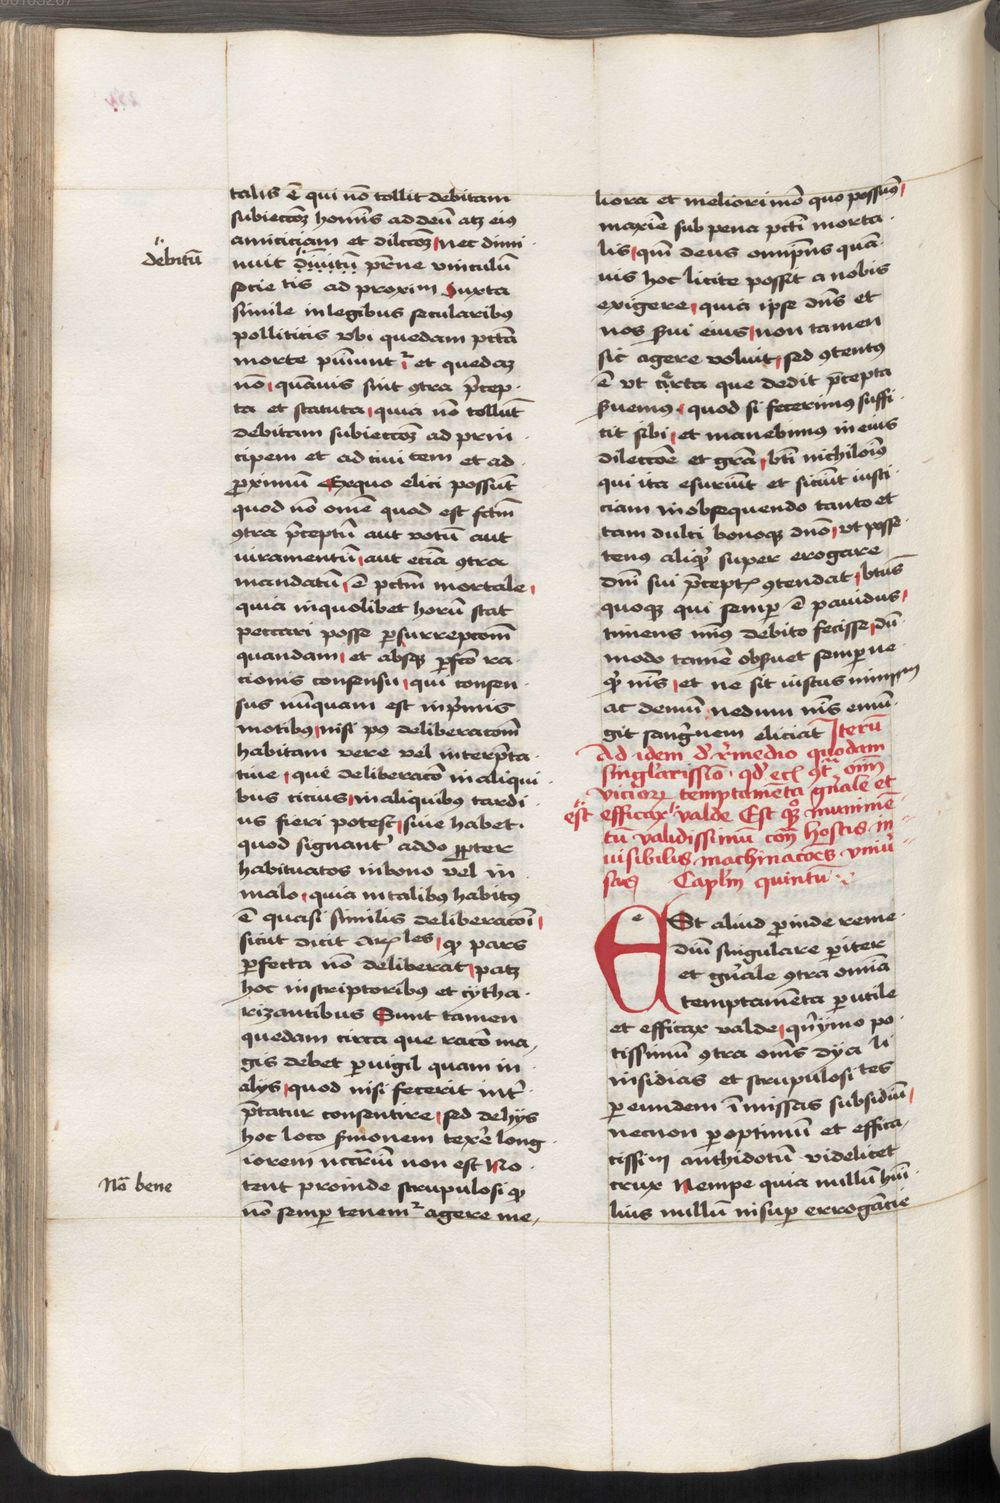 debitū
Nā bene
talis ē qui nō tollit debitam
subiectōꝫ homīs ad deū atꝫ eiꝰ
amiciciam et dilccōꝫ nec dimi
nuit diuitū pͬne vinculū
socie tis ad proximū Iuxta
simile in legibus secularibꝰ
polliticis vbi quedam pctā
morte puniunt᷑ et quedaꝫ
nō quāuis sint ꝯtra p̄cep
ta et statuta quia nō tollūt
debitam subieccōꝫ ad prin
cipem et ad ciui tem et ad
ꝓximū Ex quo elici possūt
quod nō om̄e quod est fctm̄
ꝯtra p̄ceptū aut votū aut
iuramentū aut eciā ꝯtra
mandatū ē pctm̄ mortale
quia in quolibet horū stat
peccari posse ꝑ surrepcōm̄
quandam et absqꝫ ꝑfcō ra
cionis consensu qui consen
sus nūquam est in pͥmis
motibꝰ nisi pꝰ deliberacōm̄
habitam vere vel interp̄ta
tiue que deliberacō in aliqui
bus ciciꝰ in aliquibꝰ tardi
us fieri potest siue habet
quod signant᷑ addo ꝓpter
habituatos in bono vel in
malo quia in talibꝰ habitꝰ
ē quasi similis deliberacōi
sicut dicit Ar les qͥ pars
ꝑfecta nō deliberat patꝫ
hoc in scriptoribꝰ et cytha
rizantibus Sunt tamen
quedam circa que racō ma
gis debet ꝑuigil quam in
alijs quod nisi fecerit int᷑
p̄tatur consentire sed de hijs
hoc loco s̄monem texe᷑ long
iorem nccārium non est No
tent proinde scrupulosi qͥ
nō semꝑ tenem᷑ agere me
liora et meliori mō quo possumꝰ
maxīe sub pena pctī morta
lis qm̄ deus omp̄ns quā
uis hoc licite posset a nobis
exigere quia ipse dn̄s et
nos s̄ui eius non tamen
sic agere voluit sed ꝯtentꝰ
ē vt circa que dedit p̄cepta
s̄uemꝰ quod si fecerimꝰ suffi
cit sibi et manebimꝰ in eius
dileccōe et grā bt̄i nichilo᷑iꝰ
qui ita esuriūt et siciūt iusti
ciam in obsequendo tanto et
tam dulci bonoqꝫ dn̄o vt posse
tenꝰ aliqͥ super erogare
dnī sui p̄ceptꝭ ꝯtendat btūs
quoqꝫ qui semꝑ ē pauidus
timens minꝰ debito fecisse dū
modo tamē obs̄uet semꝑ ne
qͥ nīs et ne sit iustus nimium
ac demū nedum nīs emū
git sanguinem eliciat Iterū
Ad idem de remedio quodam
singlarissīo qd̄ ecī ꝯtͣ om̄i
vicioꝝ temptamēta gn̄ale et
est efficax valde Est qͦꝫ munimē
tū validissimū cont̄ hostis in
uisibilis machinacōes vniū
sas Caplm̄ quintū
Est aliud ꝓinde reme
diū singulare ꝑiter
et gn̄ale ꝯtra omīa
temptamēta ꝑutile
et efficax valde qn̄ymo po
tissimū ꝯtra omīs dya li
insidias et scrupulosi tes
ꝑ eiundem īmissas subsidiū
necnon ꝑoptimū et effica
cissi m anthidotū videlicet
crux Nempe quia nullū hūi
lius nullū insuꝑ errogācie